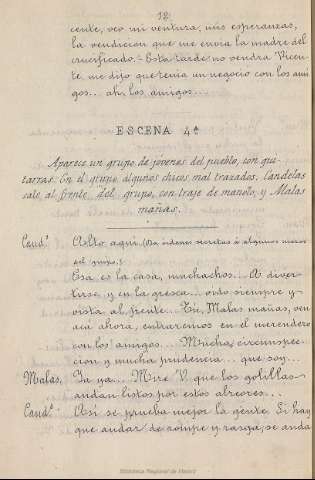 12
cente, veo mi ventura, mis esperanzas,
la vendicion que me envia la madre del
crucificado.- Esta tarde no vendra Vicen-
te, me dijo que tenia un negocio con los ami
gos... ah, los amigos...
ESCENA 4ª
Aparece un grupo de jovenes del pueblo, con gui-
tarras. En el grupo algunos chicos mal trazados, Candelas
sale al frente del grupo, con traje de manolo, y Malas
mañas.
Cand.s Alto aqui. (Da órdenes secretas á algunos mozos
del grupo.)
Esa es la casa, muchachos... A diver-
tirse, y en la gresca... oido siempre y
vista al frente... Tú, Malas mañas, ven
aca ahora, entraremos en el merendero
con los amigos... Mucha circunspec-
cion y mucha prudencia... que soy...
Malas, Ya ya... Mire V. que los golillas
andan listos por estos alreores...
Cand.s Asi se prueba mejor la gente. Si hay
que andar de rompe y rasga, se anda
Biblioteca Regional de Madrid